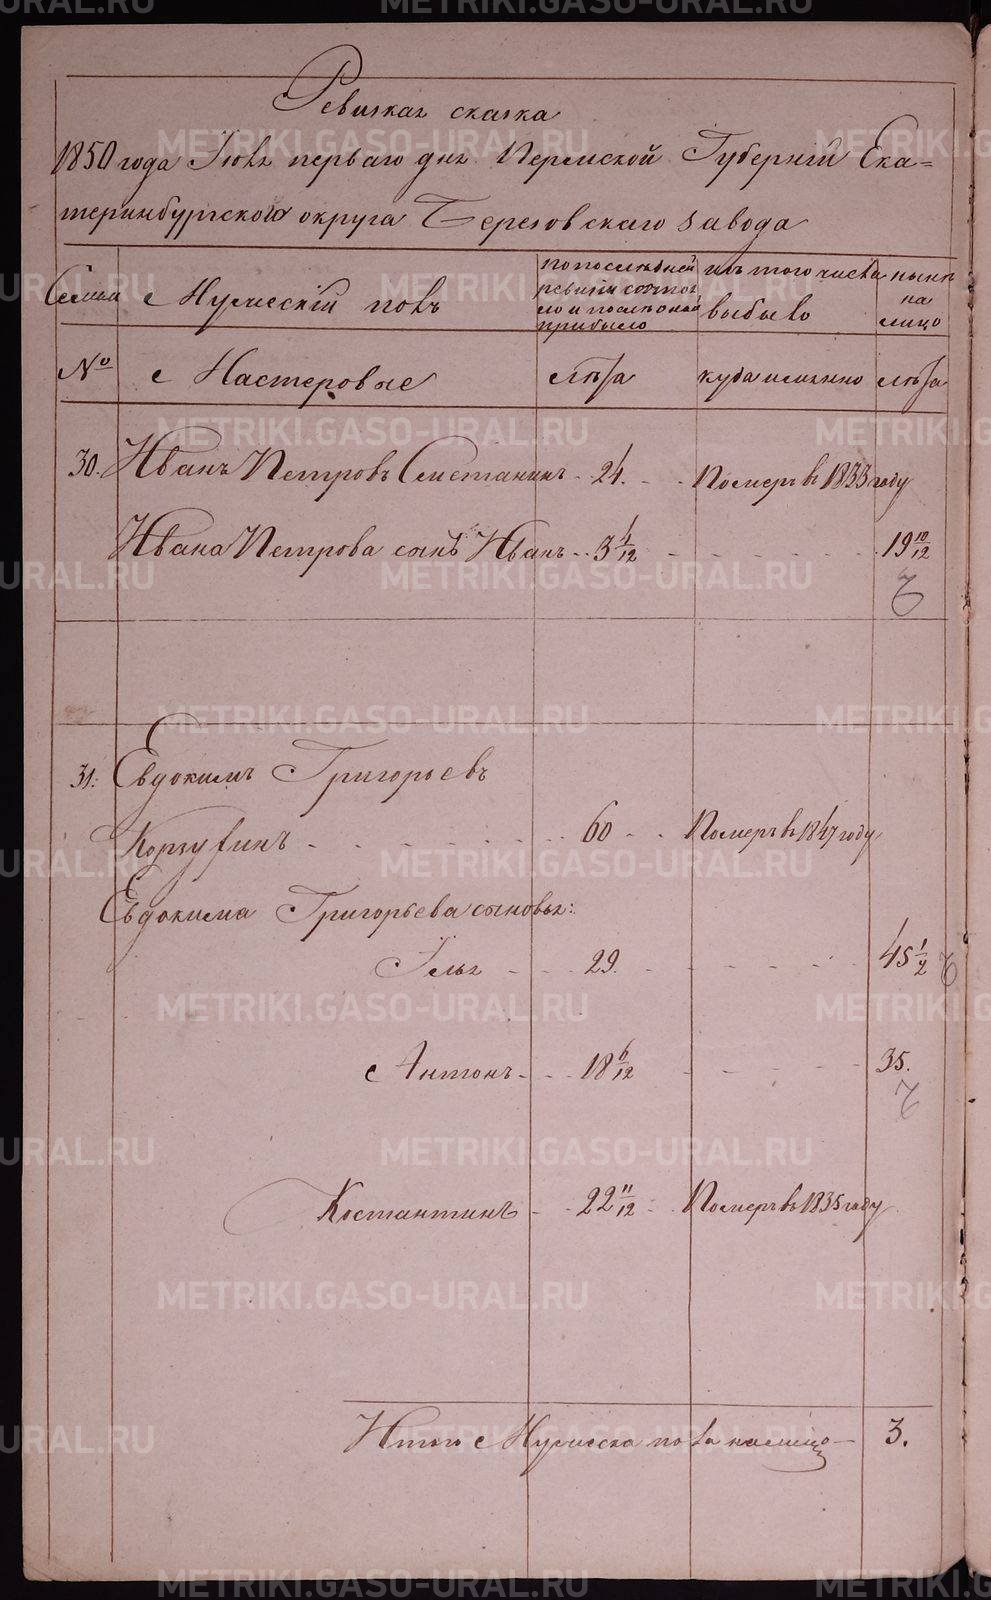 Ревизкая сказка
1850 года Июля перваго дня Пермской Губерніи Ека=
теринбургскаго округа Березовскаго завода
Семьи
Мужескій полъ
по последней
ревизіи состоя
ло и после оной
прибыло
изъ того числа
выбыло
ныне
на
лицо
№
Мастеровые
лѣта
куда именно
лѣта
30. Иванъ Петровъ Сметанинъ - 24. - - Померъ въ 1833 году
Ивана Петрова сынъ Иванъ - - 3 1/12 - - - - - - 19 10/12
31. Евдокимъ Григорьевъ
Корзухинъ - - - - - - - 60 - - Померъ въ 1847 году
Евдокима Григорьева сыновья:
Илья - - - 29. - - - - - - 45 1/2
Антонъ - - - 18 6/12 - - - - - 35.
Костантинъ - - 22 11/12 - Померъ въ 1835 году
Итого Мужеска пола налицо - 3.
METRIKI.GASO-URAL.RU